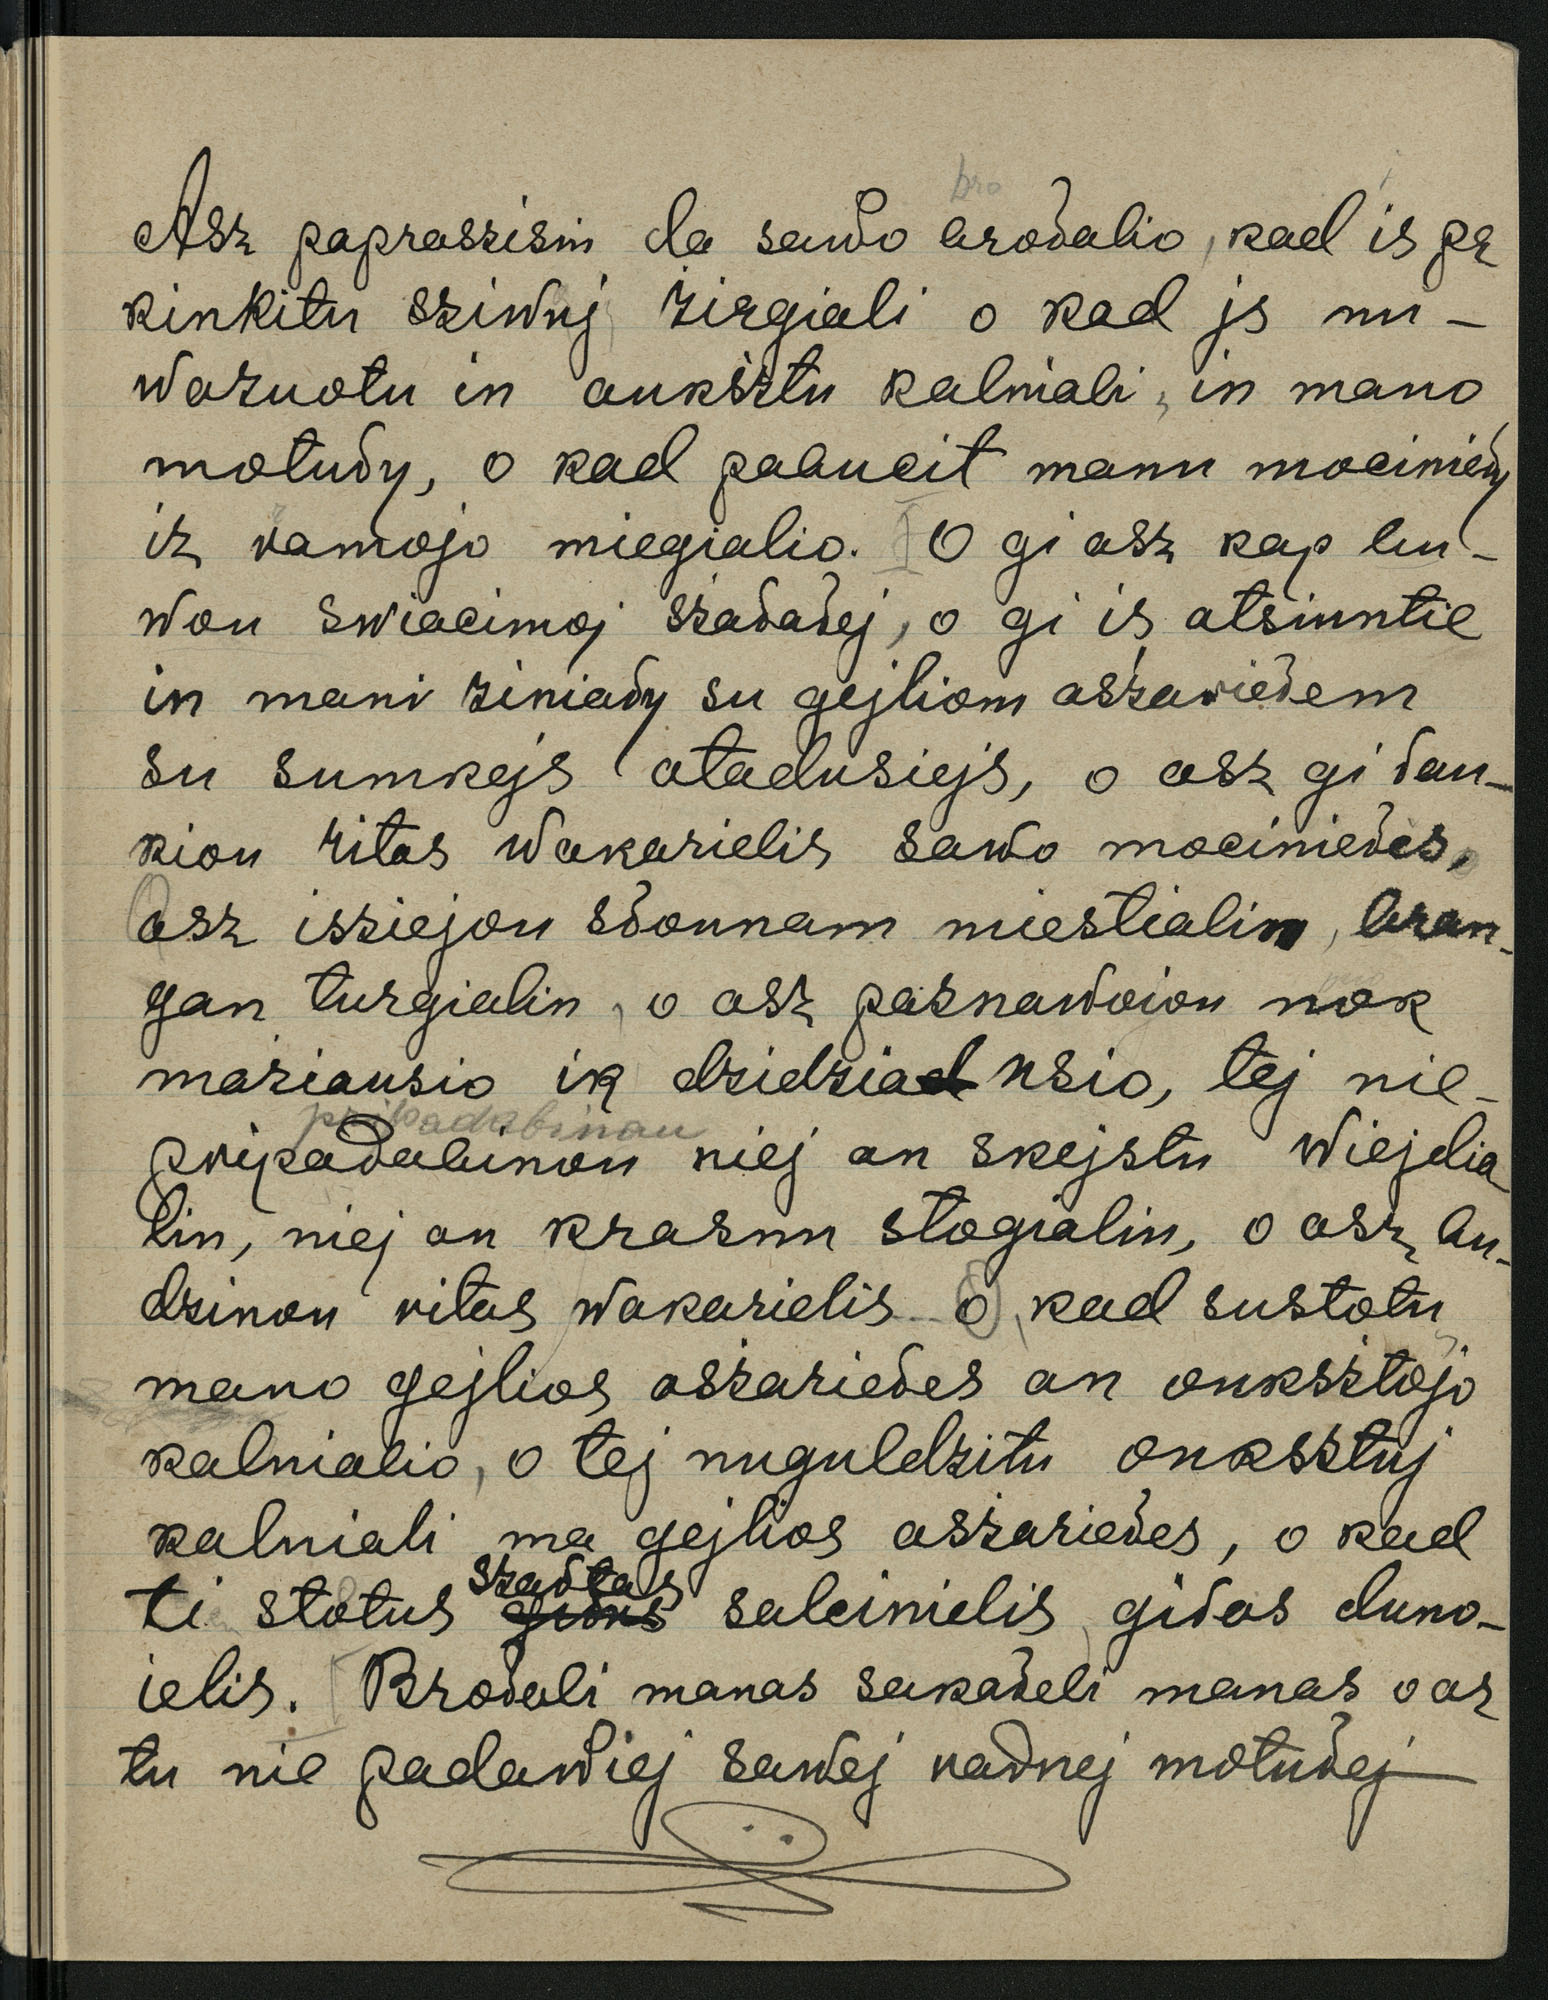 bro
Asz papraszisin da sawo brođalio, kad is pą
kinkitu sziwuj žirgiali o kad js nu-
wažuotu in aukśztu kalniali, in mano
motuđy, o kad pabucit manu mociniedy
iz ramojo miegialio. O gi asz kap bu-
wou swiacimoj szađađej, o gi is atsiuntie
in mani žiniađy su gejliom aszarieđem
su sumkejs atadusiejs, o asz gi đau-
kiou ritas wakarielis sawo mociniedes,
asz iszziejou sđounam miestialin, bran-
gan turgialin, o asz parnawoiou nok
mažiausio ik dzidziausio, tej nie-
pripadabinau
pripađabinou niej an skejstu wiejdia
lin, niej an krasnu stogialin, o asz bu-
dzinou ritas wakarielis o kad sustotu
mano gejlios aszarieđes an oukśztojo
kalnialio, o tej nuguldzitu oukśztuj
kalniali ma gejlios aszarieđes, o kad
szađtas
ti stotus giđus salcinielis giđas duno-
ielis. Brođali manas sakađeli manas o až
tu nie padawiej sawej rađnej motuđej